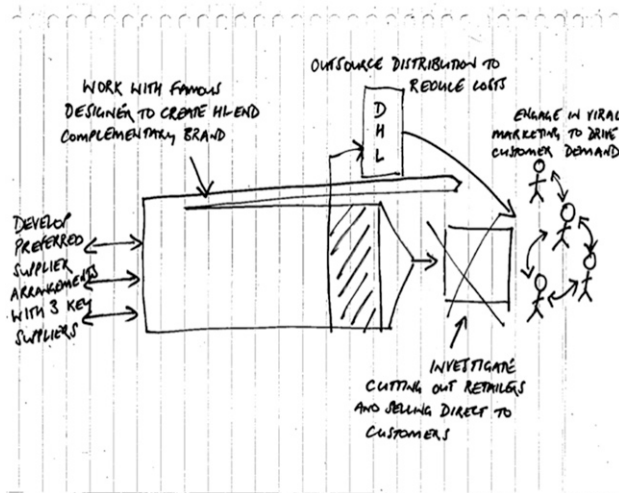 WORK WITH FAMOUS
DESIGNER TO CREATE HI-END
COMPLEMENTARY BRAND
OUTSOURCE DISTRIBUTION TO
REDUCE COSTS
D
H
L
ENGAGE IN VIRAL
MARKETING TO DRIVE
CUSTOMER DEMAND
DEVELOP
PREFERRED
SUPPLIER
ARRANGEMENTS
WITH 3 KEY
SUPPLIERS
INVESTIGATE
CUTTING OUT RETAILERS
AND SELLING DIRECT TO
CUSTOMERS